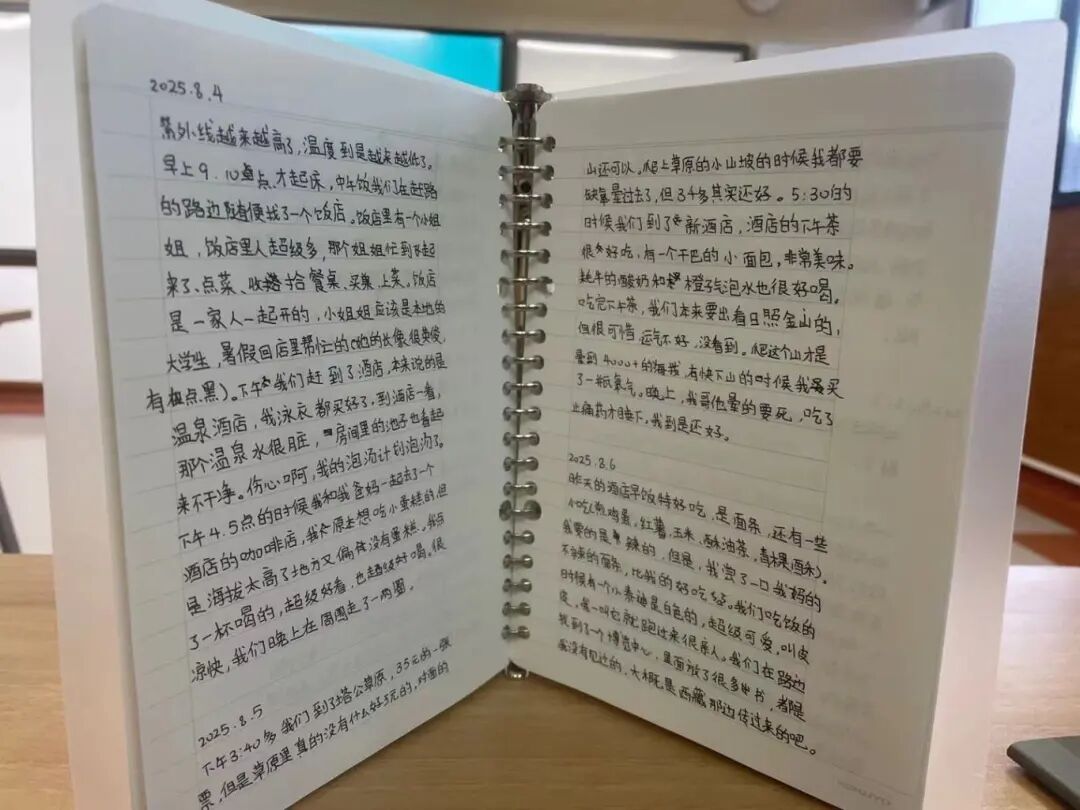 2025.8.4
紫外线越来越高了,温度到是越来越低了。
早上9.10点点才起床,中午饭我们在赶路
的路边随便找了一个饭店。饭店里有一个小姐
姐,饭店里人超级多,那个姐姐忙到飞起
来了、点菜、收拾餐桌、买单、上菜。饭店
是一家人一起开的,小姐姐应该是本地的
大学生,暑假回店里帮忙的(她的长像很英俊,
有点黑)。下午我们赶到了酒店,本来说的是
温泉酒店,我泳衣都买好了,到酒店一看,
那个温泉水很脏,房间里的池子也看起
来不干净。伤心啊,我的泡汤计划泡汤了。
下午4.5点的时候我和我爸妈一起去了一个
酒店的咖啡店,我原本想吃小蛋糕的,但
是海拔太高了地方又偏没有蛋糕。我点
了一杯喝的,超级好看,也超级好喝。很
凉快,我们晚上在周围走了一两圈。
2025.8.5
下午3:40多我们到了塔公草原,35元的一张
票,但是草原里真的没有什么好玩的,对面的
山还可以。爬上草原的小山坡的时候我都要
缺氧晕过去了,但34多其实还好。5:30的
时候我们到了新酒店,酒店的下午茶
很好吃,有一个干巴的小面包,非常美味。
牦牛的酸奶和橙子气泡水也很好喝。
吃完下午茶,我们本来要出看日照金山的,
但很可惜,运气不好,没看到。爬这个山才是
晕到4000+的海拔,有快下山的时候我买
了一瓶氧气。晚上,我哥他晕的要死,吃了
止痛药才睡下。我到是还好。
2025.8.6
昨天的酒店早饭特好吃,是面条,还有一些
小吃(煎鸡蛋,红薯,玉米,酥油茶,青稞(面条)。
我要的是辣的,但是,我尝了一口我妈的
不辣的面条,比我的好吃。我们吃饭的
时候有一个小泰迪是白色的,超级可爱,叫皮
皮,我一叫它就跑过来很亲人。我们在路边
找到了一个博览中心,里面放了很多书,都是
我没有见过的,大概是西藏那边传过来的吧。